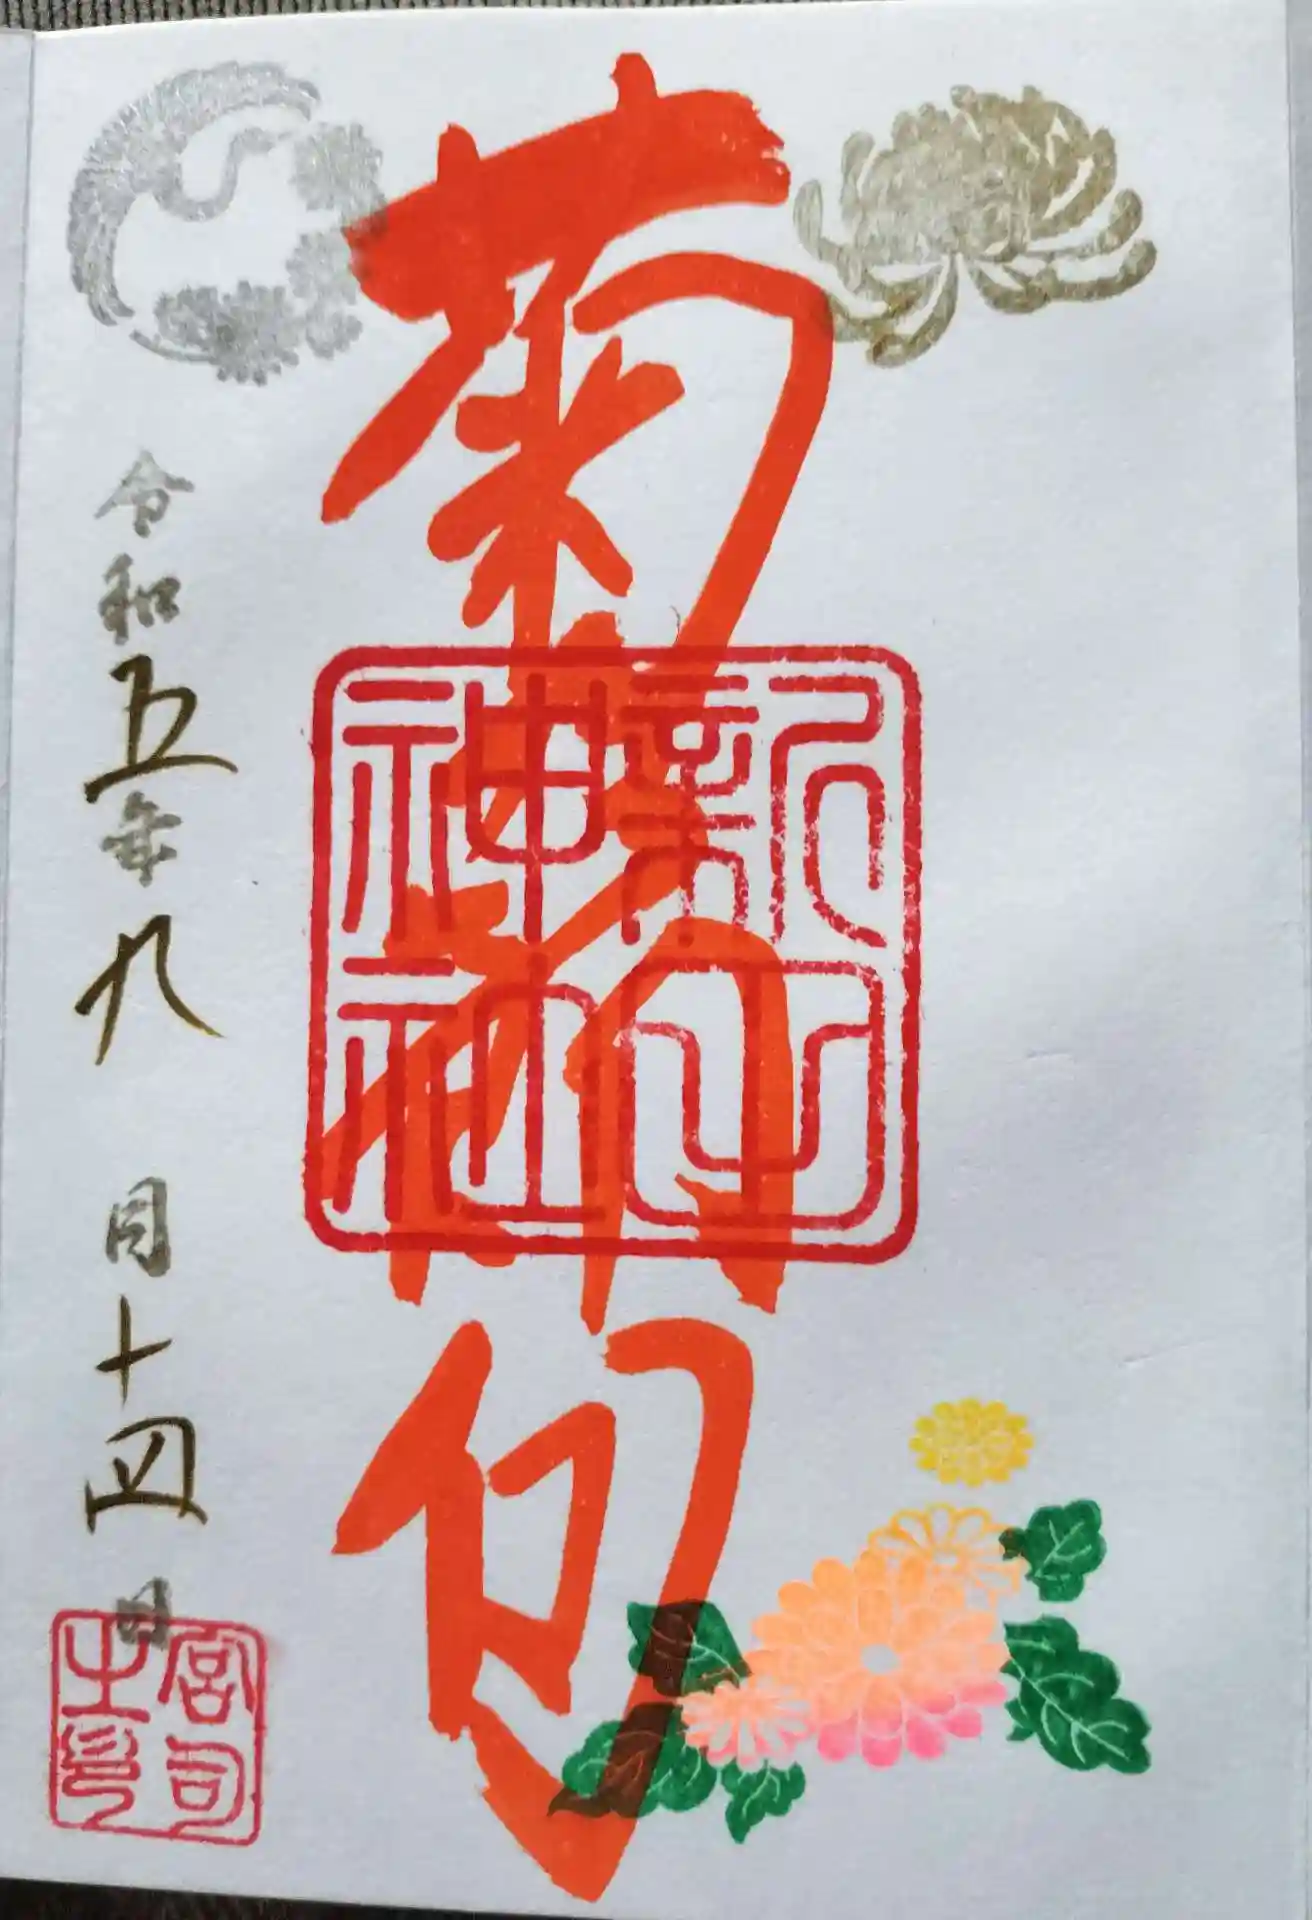 菊乃節句
新田
神社
令和五年九月十四日
宮司
之印